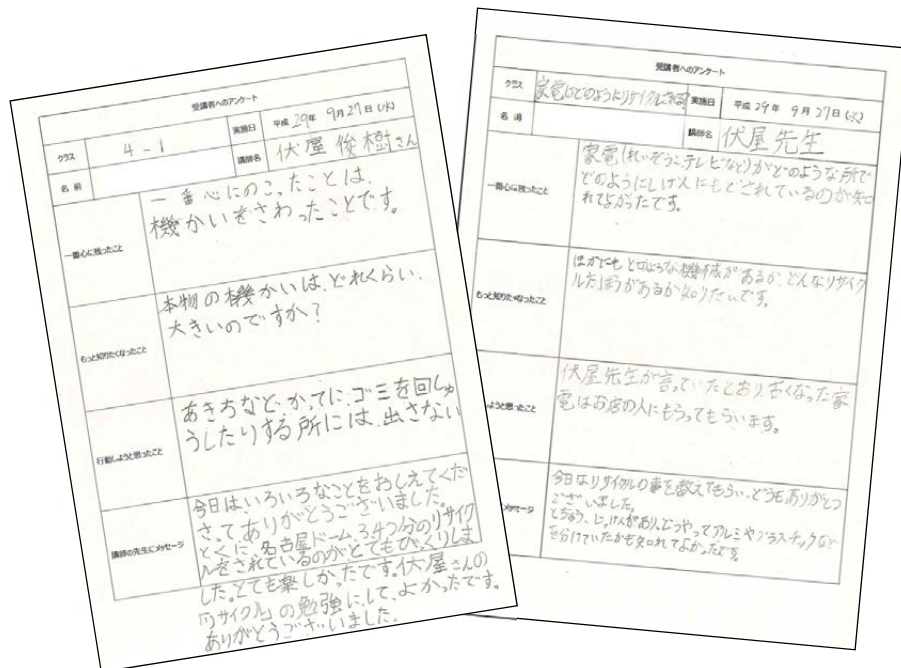 受講者へのアンケート
クラス 4-1 実施日 平成 29年 9月27日(水)
名前 講師名 伏屋俊樹さん
一番心に残ったこと
一番心にのこったことは、
機かいをさわったことです。
もっと知りたくなったこと
本物の機かいは、どれくらい、
大きいのですか?
行動しようと思ったこと
あきちなど、かってに、ゴミを回しゅ
うしたりする所には、出さない
講師の先生にメッセージ
今日はいろいろなことをおしえてくだ
さってありがとうございました。
とくに、名古屋ドーム、34つ分のリサイク
ルをされているのがとてもびっくりしま
した。とても楽しかったです。伏屋さんの
「リサイクル」の勉強にして、よかったです。
ありがとうございました。
受講者へのアンケート
クラス 家電はどのようにリサイクルされる? 実施日 平成 29年 9月27日(水)
名前 講師名 伏屋先生
一番心に残ったこと
家電(れいぞうこ、テレビなど)がどのような所で
どのようにしげんにもどされているのが知
れてよかったです。
もっと知りたくなったこと
ほかにもどのような機械があるか、どんなリサイク
ルほうほうがあるか知りたいです。
しようと思ったこと
伏屋先生が言っていたとおり、古くなった家
電はお店の人にもらってもらいます。
メッセージ
今日はリサイクルの事を教えてもらい、どうもありがとう
ございました。
とちゅう、じっけんがあり、どうやってアルミやプラスチックなど
を分けていたかも知れてよかったです。